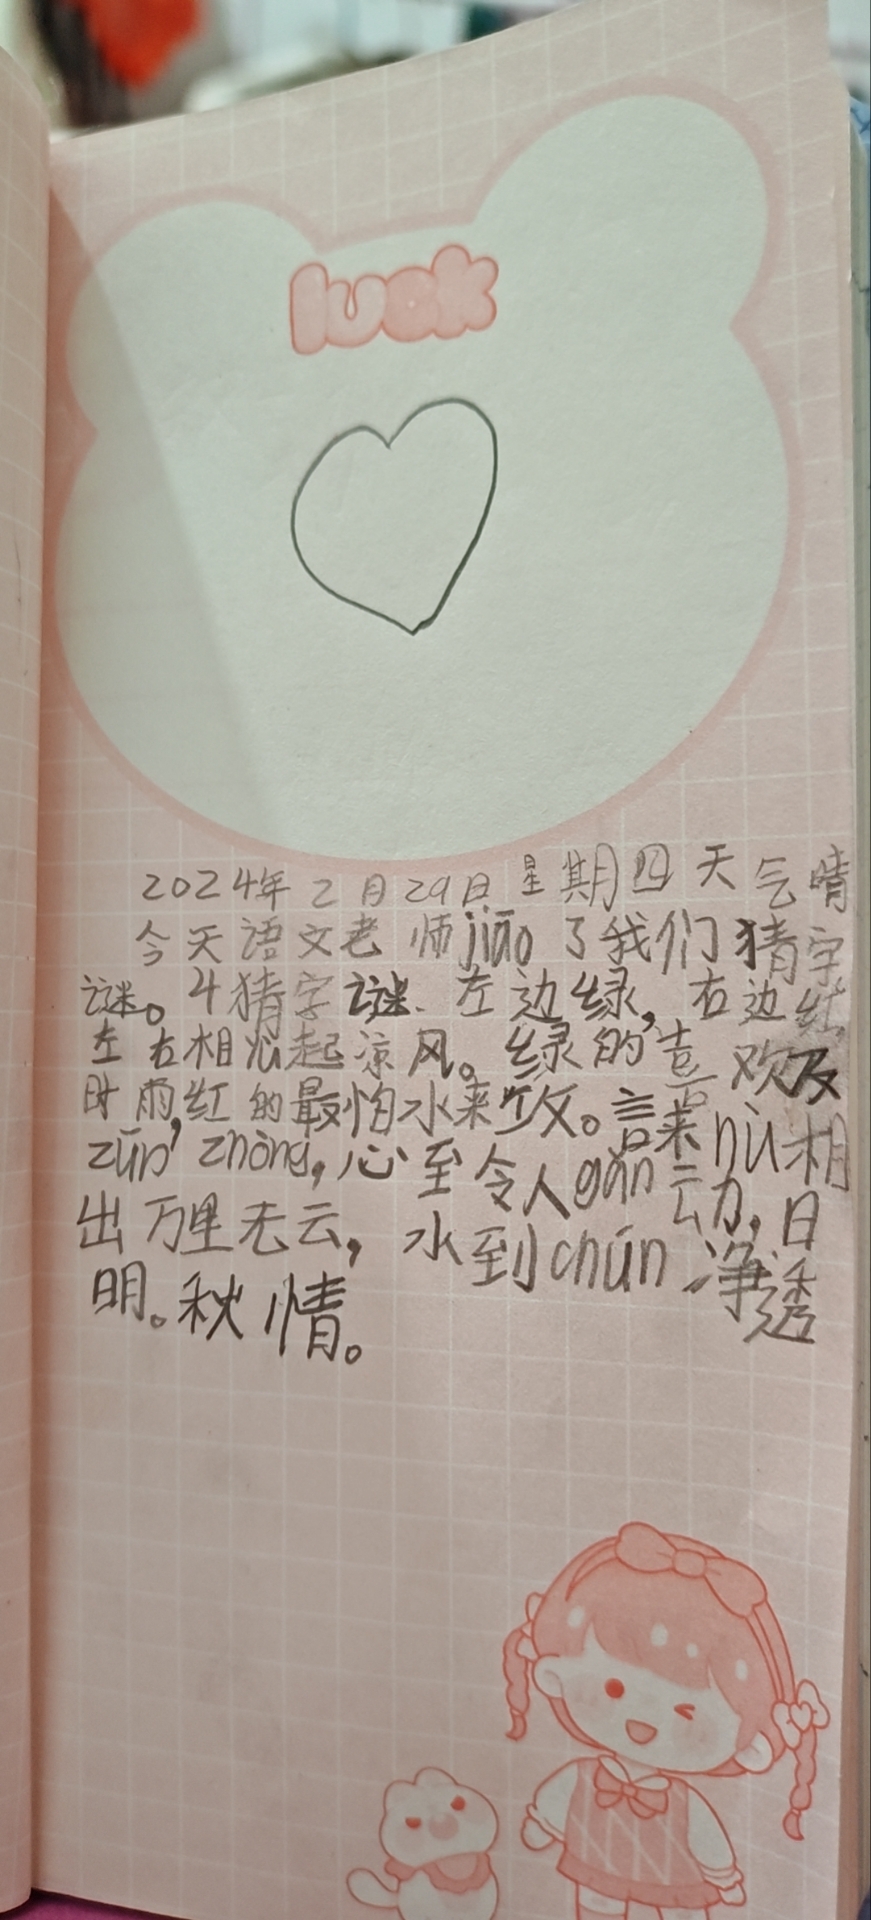 luck
2024年2月29日星期四天气晴
今天语文老师jiāo了我们猜字
谜。4猜字谜.左边绿,右边红
左右相心起凉风。绿的喜欢及
时雨,红的最怕水来攻。言来nù相
zūn zhòng,心至令人gǎn动,日
出万里无云,水到chún净透
明。秋情。